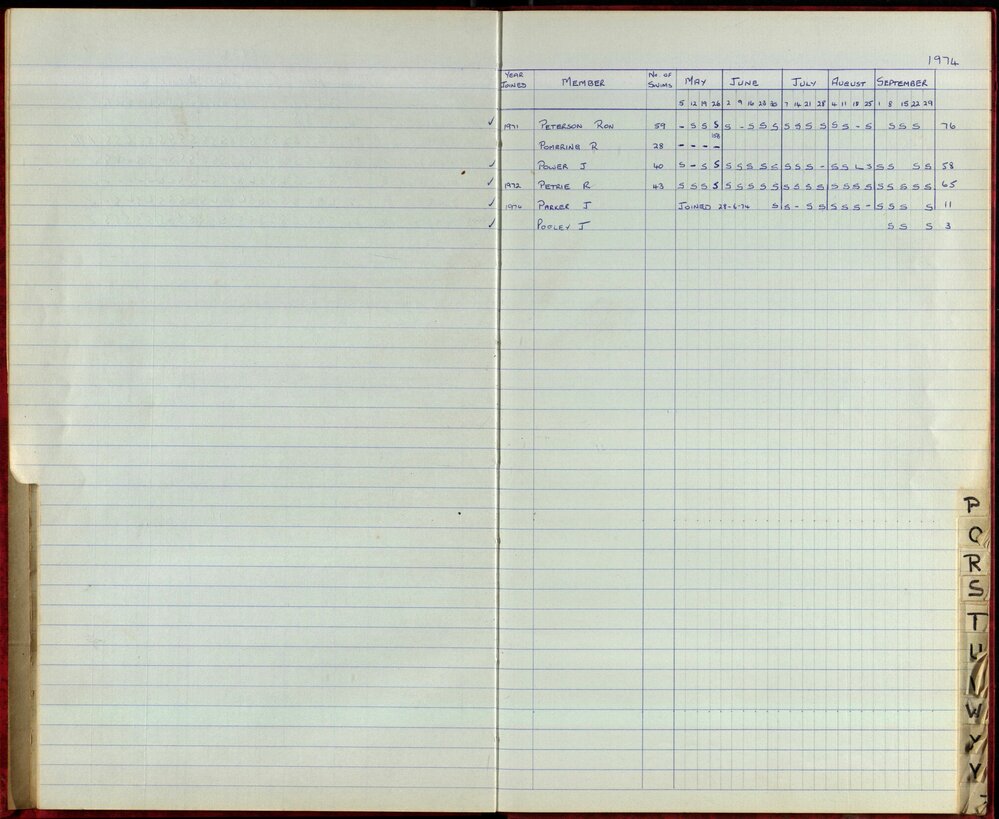 1974
YEAR JOINED MEMBER No. OF SWIMS MAY JUNE JULY AUGUST SEPTEMBER
5 12 19 26 2 9 16 23 30 7 14 21 28 4 11 18 25 1 8 15 22 29
✓ 1971 PETERSON RON 59 - S S S S - S S S S S S S S S - S S S S 76
158
POMERING R 28 - - - -
✓ POWER J 40 S - S S S S S S S S S S - S S L S S S S S 58
✓ 1972 PETRIE R 43 S S S S S S S S S S S S S S S S S S S S S S 65
✓ 1974 PARKER J JOINED 28-6-74 S S - S S S S S - S S S S 11
✓ POOLEY J S S S 3
P
Q
R
S
T
U
W
Y